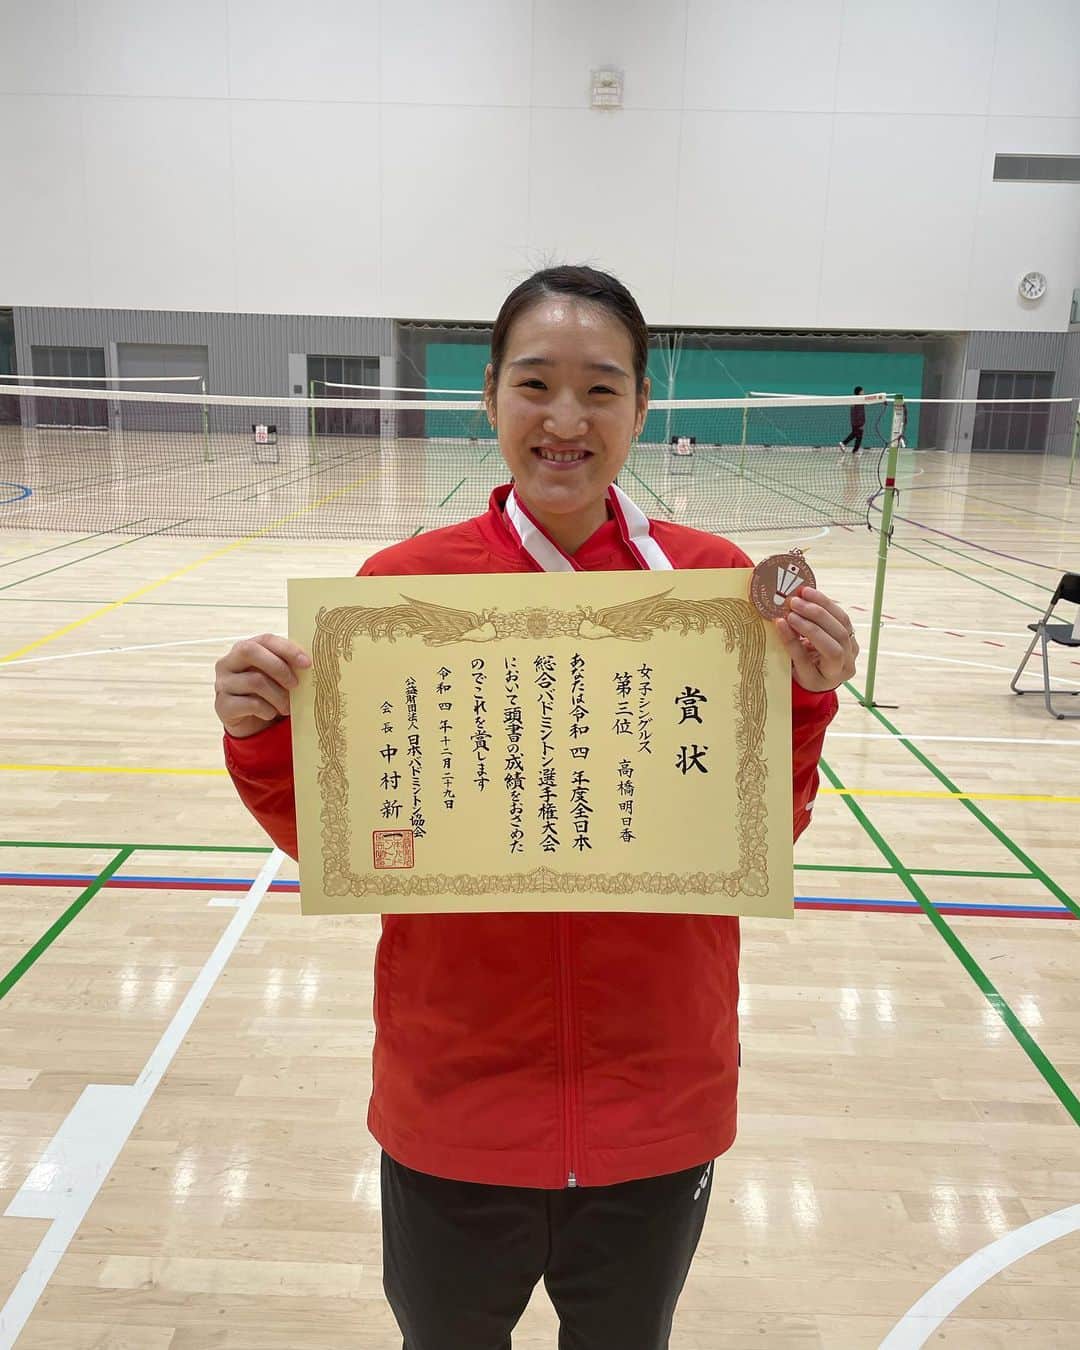 賞状
女子シングルス
第三位 高橋明日香
あなたは令和四年度全日本
総合バドミントン選手権大会
において頭書の成績をおさめた
のでこれを賞します
令和四年十二月二十九日
公益財団法人 日本バドミントン協会
会長 中村新